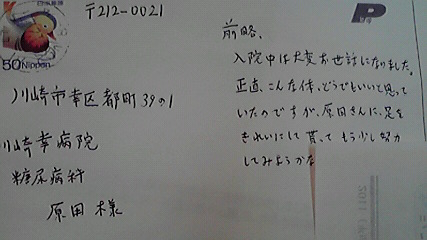 日本郵便
50 Nippon
〒212-0021
川崎市幸区都町39の1
川崎幸病院
糖尿病科
原田様
前略、
入院中は大変お世話になりました。
正直、こんな体、どうでもいいと思って
いたのですが、原田さんに、足を
きれいにして貰って もう少し努力
してみようかな